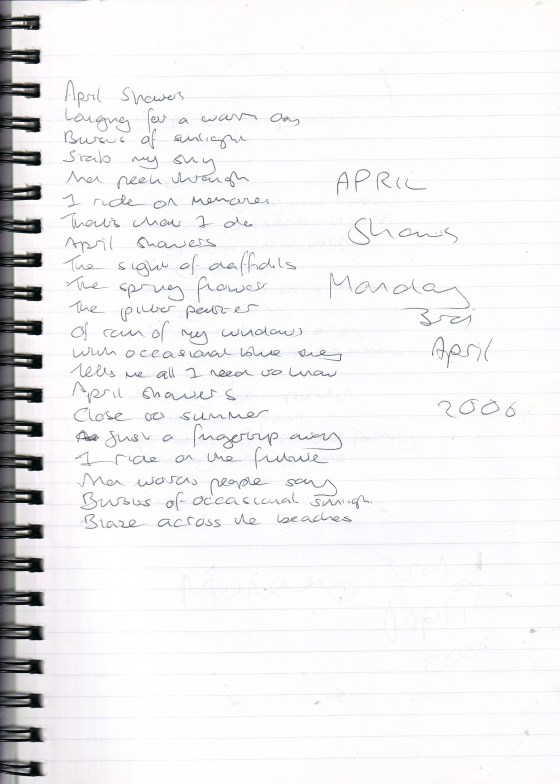 April Showers
Longing for a warm day
Bursts of sunlight
Stab my sky
That peek through
I ride on memories
That's what I do
April showers
The sight of daffidils
The spring flower
The pitter patter
Of rain of my windows
With occasional blue sky
Tells me all I need to know
April showers
Close to summer
Just a fingertip away
I ride on the future
That words people say
Bursts of occasional sunlight
Blaze across the beaches
APRIL
Showers
Monday
3rd
April
2006